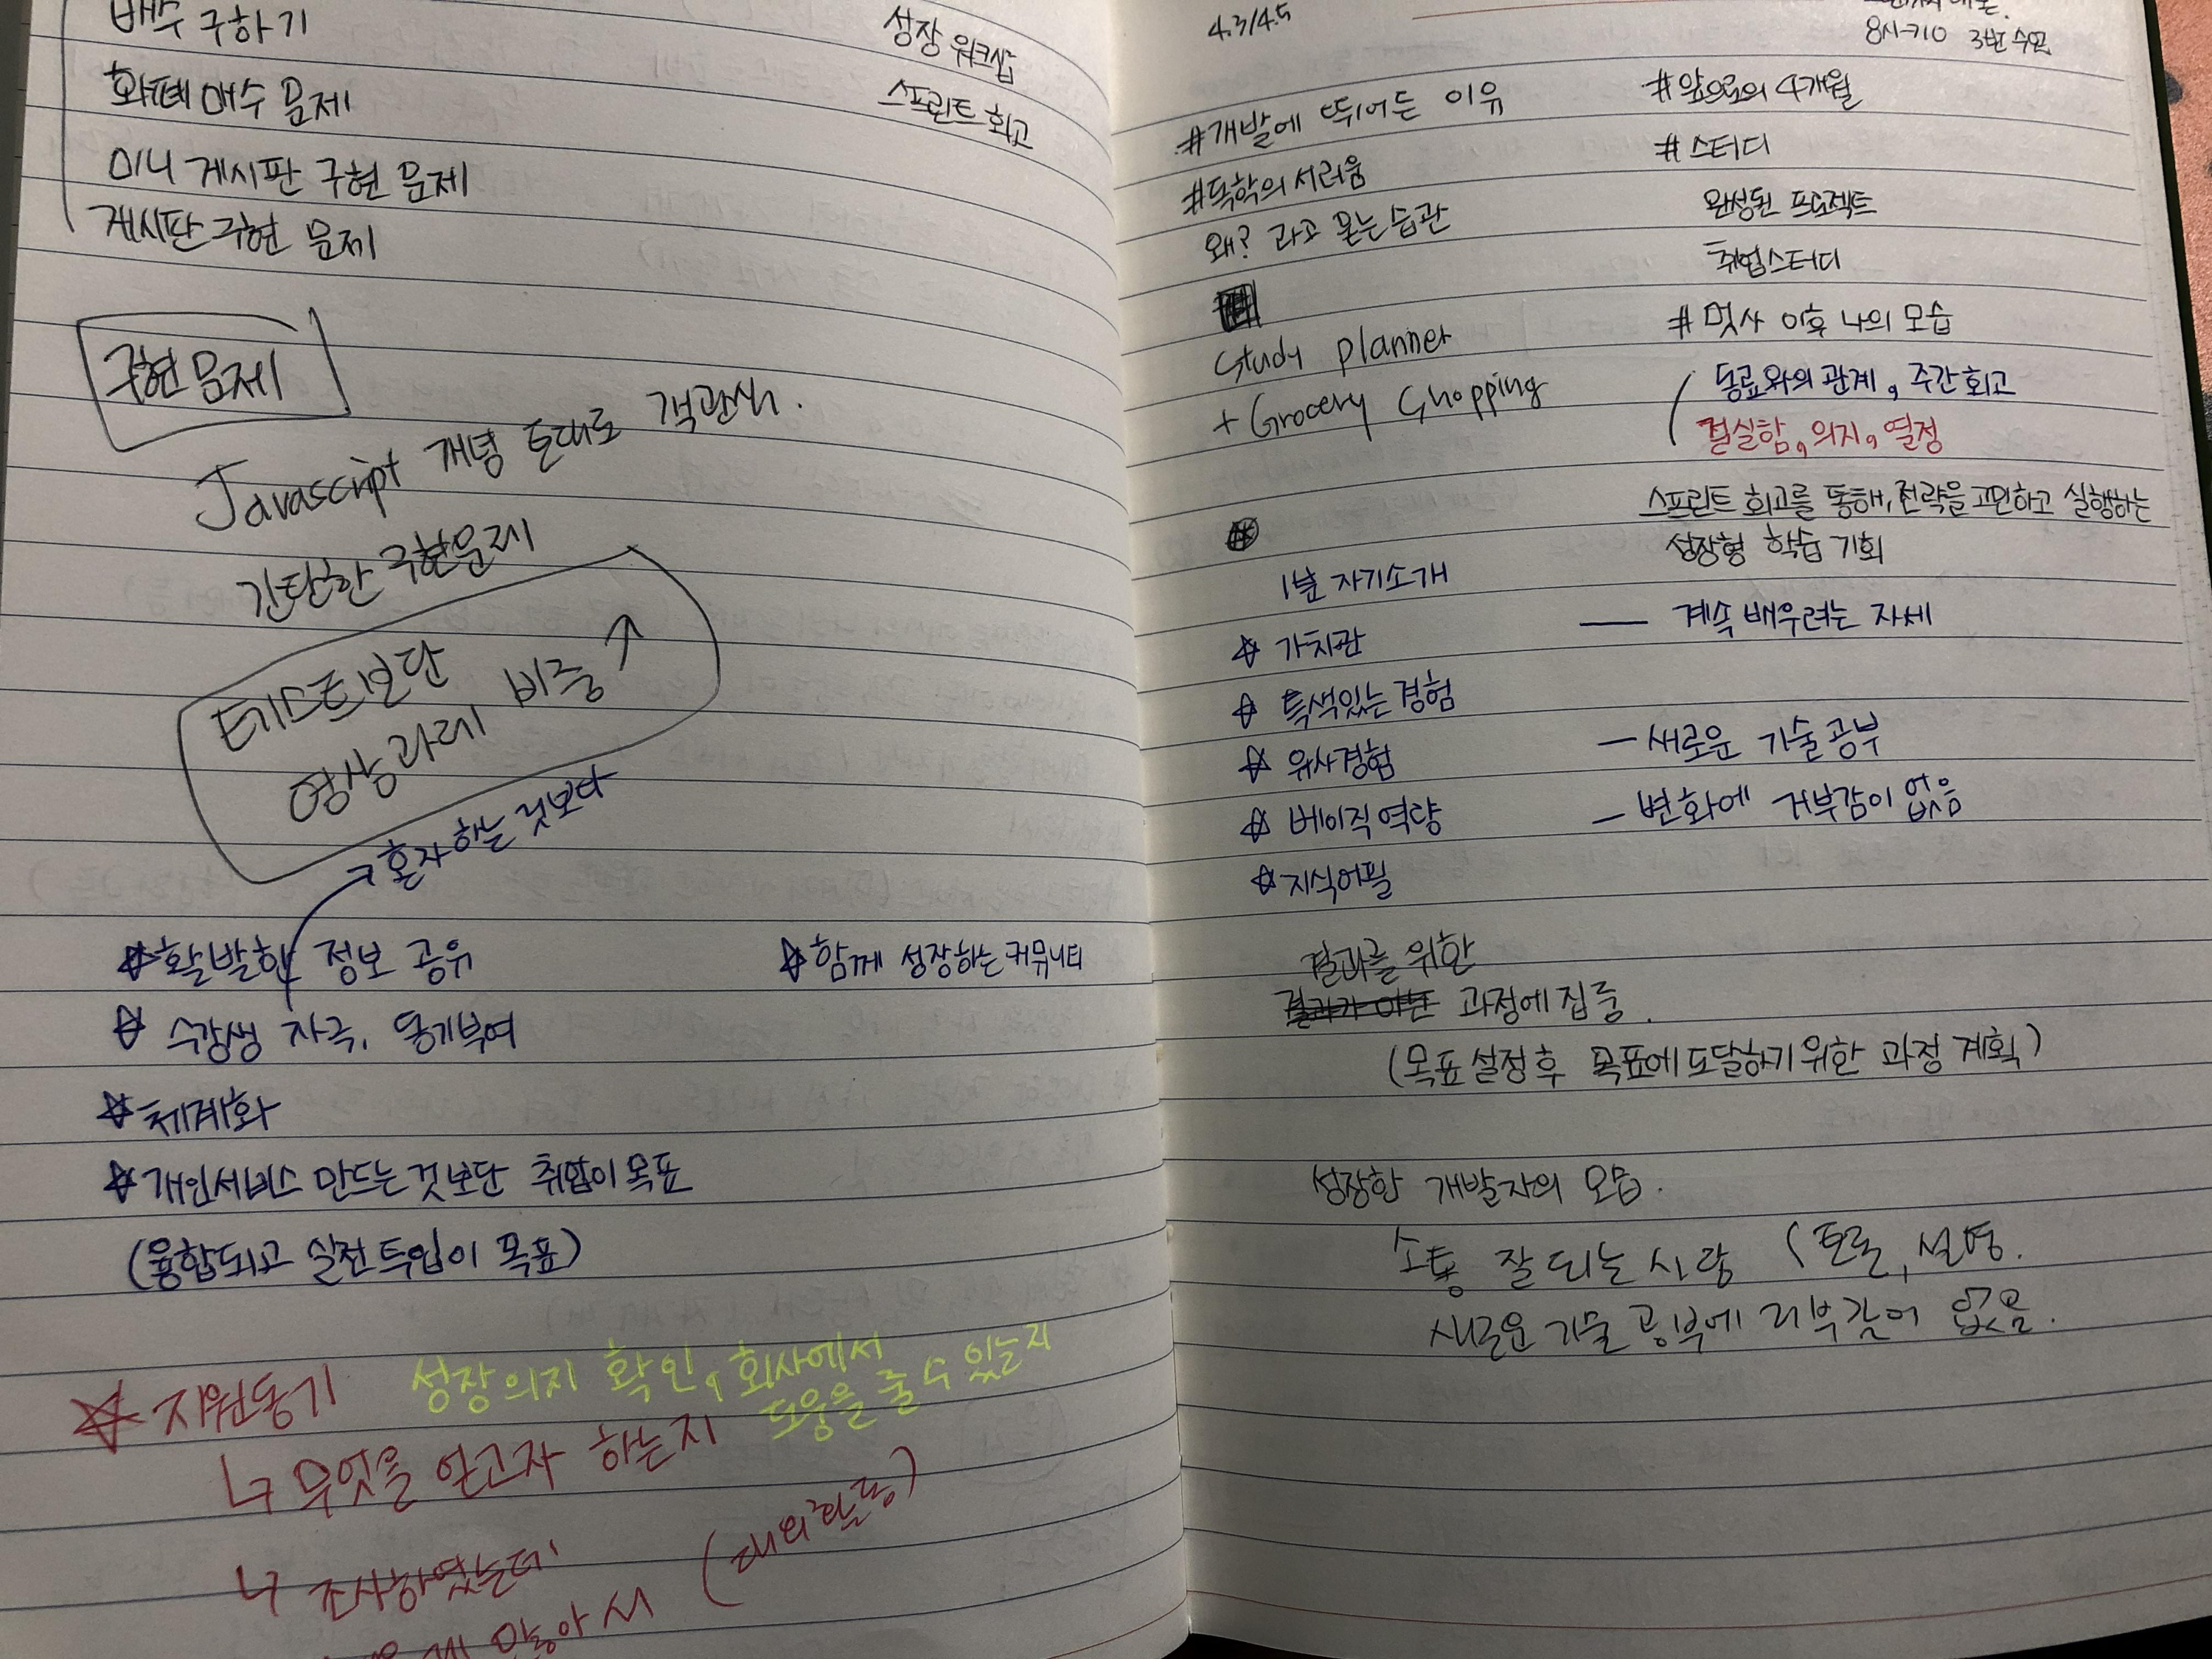 배수 구하기
화폐 매수 문제
미니 게시판 구현 문제
게시판 구현 문제
성장 워크샵
스프린트 회고
구현 문제
Javascript 개념 토대로 객관식.
간단한 구현문제
테스트보단
영상과제 비중 ↑
혼자 하는 것보다
☆ 활발한 정보 공유
☆ 함께 성장하는 커뮤니티
☆ 수강생 자극, 동기부여
☆ 체계화
☆ 개인서비스 만드는것보단 취업이 목표
(융합되고 실전투입이 목표)
☆ 지원동기
성장의지 확인, 회사에서
도움을 줄 수 있는지
↳ 무엇을 얻고자 하는지
↳ 조사하였는데
많아서 (대외활동)
4.3/4.5
#개발에 뛰어든 이유
#독학의 서러움
왜? 라고 묻는 습관
Study planner
+ Grocery Shopping
1분 자기소개
☆ 가치관
☆ 특색있는 경험
☆ 유사경험
☆ 베이직 역량
☆ 지식어필
8시-710 3번 수면
#앞으로의 4개월
#스터디
완성된 프로젝트
취업스터디
#멋사 이후 나의 모습
동료와의 관계, 주간회고
절실함, 의지, 열정
스프린트 회고를 통해, 전략을 고민하고 실행하는
성장형 학습 기회
— 계속 배우려는 자세
— 새로운 기술공부
— 변화에 거부감이 없음
결과를 위한
결과가 아닌 과정에 집중.
(목표 설정 후 목표에 도달하기 위한 과정 계획)
성장한 개발자의 모습.
소통 잘 되는 사람 (토론, 설명.
새로운 기술 공부에 거부감이 없음.